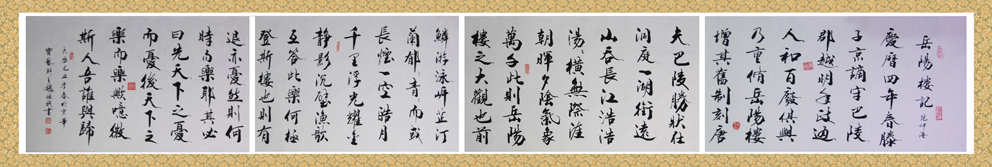 岳陽樓記 范仲淹
慶曆四年春滕
子京謫守巴陵
郡越明年政通
人和百廢俱興
乃重脩岳陽樓
增其舊制刻唐
夫巴陵勝狀在
洞庭一湖銜遠
山吞長江浩浩
湯〻橫無際涯
朝暉夕陰氣象
萬千此則岳陽
樓之大觀也前
鱗游泳岸芷汀
蘭郁〻青〻而或
長煙一空皓月
千里浮光耀金
靜影沉璧漁歌
互答此樂何極
登斯樓也則有
退亦憂然則何
時而樂耶其必
曰先天下之憂
而憂後天下之
樂而樂歟噫微
斯人吾誰與歸